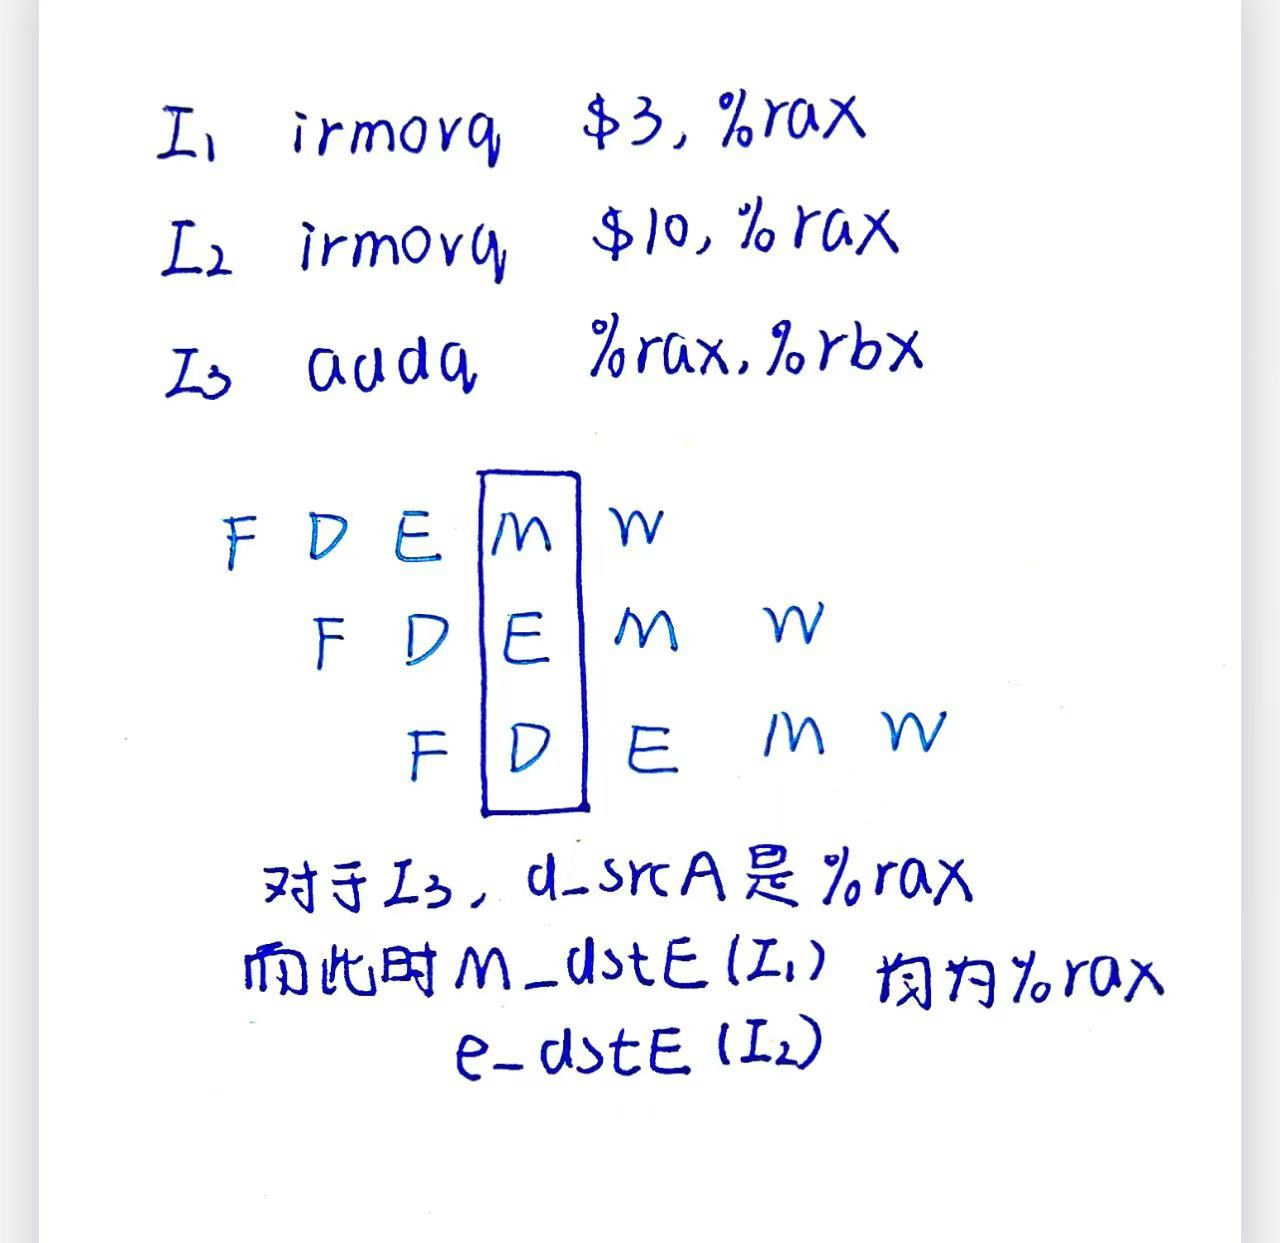 I₁ irmovq $3, %rax
I₂ irmovq $10, %rax
I₃ addq %rax, %rbx
F D E M W
F D E M W
F D E M W
对于I₃, d_srcA是%rax
而此时M_dstE(I₁) 均为%rax
e_dstE(I₂)